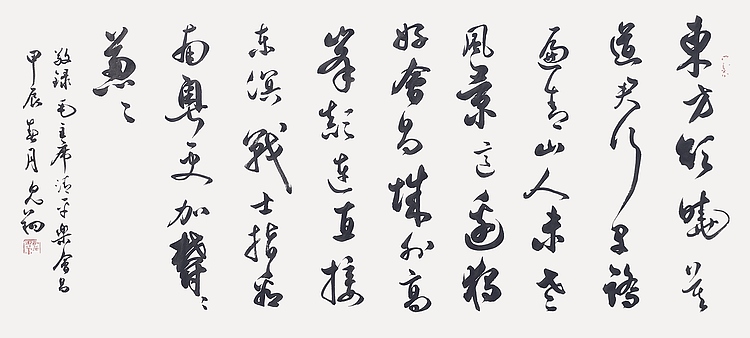 東方欲曉莫
道君行早踏
遍青山人未老
風景這邊獨
好會昌城外高
峯顛連直接
东溟戰士指看
南粵更加鬱〻
葱〻
敬録毛主席清平樂會昌
甲辰春月